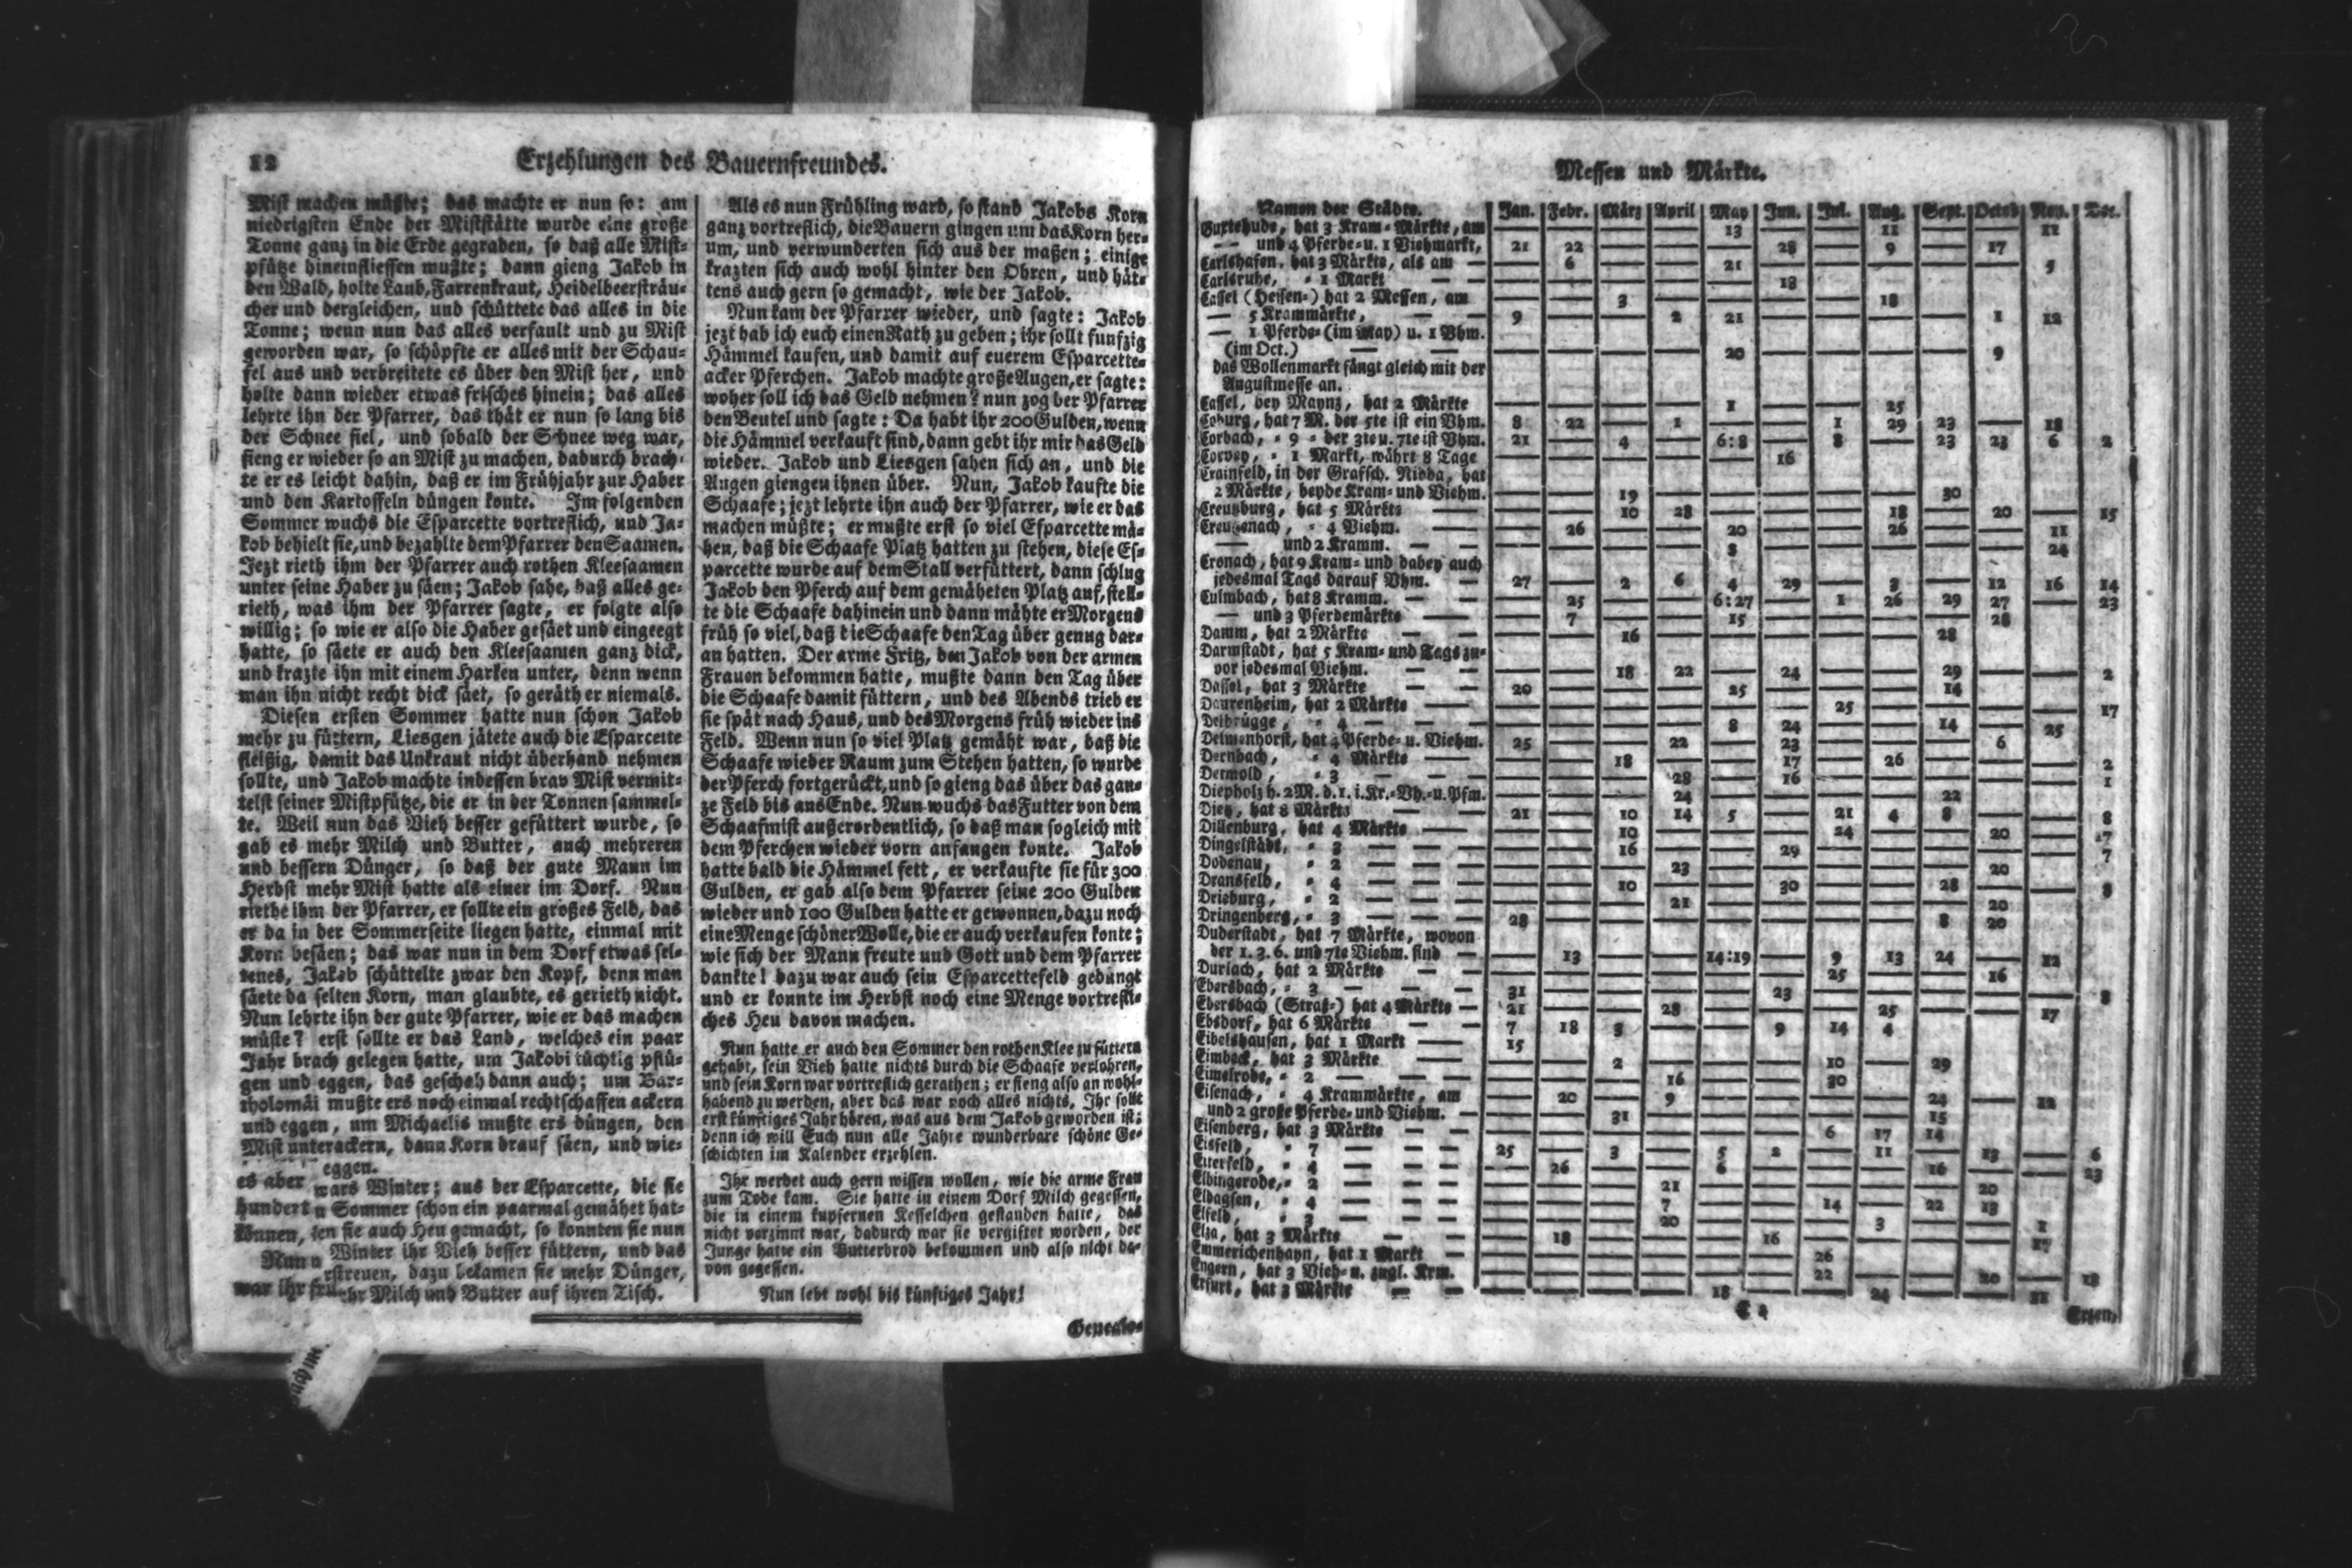 12
Erzehlungen des Bauernfreundes.
Mist machen müßte; das machte er nun so: am
niedrigsten Ende der Miststätte wurde eine große
Tonne ganz in die Erde gegraben, so daß alle Mist-
pfütze hineinfliessen mußte; dann gieng Jakob in
den Wald, holte Laub, Farrenkraut, Heidelbeersträu-
cher und dergleichen, und schüttete das alles in die
Tonne; wenn nun das alles verfault und zu Mist
geworden war, so schöpfte er alles mit der Schau-
fel aus und verbreitete es über den Mist her, und
holte dann wieder etwas frisches hinein; das alles
lehrte ihn der Pfarrer, das thät er nun so lang bis
der Schnee fiel, und sobald der Schnee weg war,
fieng er wieder so an Mist zu machen, dadurch brach-
te er es leicht dahin, daß er im Frühjahr zur Haber
und den Kartoffeln düngen konte. Im folgenden
Sommer wuchs die Esparcette vortreflich, und Ja-
kob behielt sie, und bezahlte dem Pfarrer den Saamen.
Jezt rieth ihm der Pfarrer auch rothen Kleesaamen
unter seine Haber zu säen; Jakob sahe, daß alles ge-
rieth, was ihm der Pfarrer sagte, er folgte also
willig; so wie er also die Haber gesäet und eingeegt
hatte, so säete er auch den Kleesaamen ganz dick,
und krazte ihn mit einem Harken unter, denn wenn
man ihn nicht recht dick säet, so geräth er niemals.
Diesen ersten Sommer hatte nun schon Jakob
mehr zu füttern, Liesgen jätete auch die Esparcette
fleißig, damit das Unkraut nicht überhand nehmen
sollte, und Jakob machte indessen brav Mist vermit-
telst seiner Mistpfütze, die er in der Tonnen sammel-
te. Weil nun das Vieh besser gefüttert wurde, so
gab es mehr Milch und Butter, auch mehreren
und bessern Dünger, so daß der gute Mann im
Herbst mehr Mist hatte als einer im Dorf. Nun
riethe ihm der Pfarrer, er sollte ein großes Feld, das
er da in der Sommerseite liegen hatte, einmal mit
Korn besäen; das war nun in dem Dorf etwas sel-
tenes, Jakob schüttelte zwar den Kopf, denn man
säete da selten Korn, man glaubte, es gerieth nicht.
Nun lehrte ihn der gute Pfarrer, wie er das machen
müste? erst sollte er das Land, welches ein paar
Jahr brach gelegen hatte, um Jakobi tüchtig pflü-
gen und eggen, das geschah dann auch; um Bar-
tholomäi mußte ers noch einmal rechtschaffen ackern
und eggen, um Michaelis mußte ers düngen, den
Mist unterackern, dann Korn drauf säen, und wie-
eggen.
es aber wars Winter; aus der Esparcette, die sie
hundert n Sommer schon ein paarmal gemähet hat-
können, ten sie auch Heu gemacht, so konnten sie nun
Nun Winter ihr Vieh besser füttern, und das
rstreuen, dazu bekamen sie mehr Dünger,
war ihr hr Milch und Butter auf ihren Tisch.
Als es nun Frühling ward, so stand Jakobs Korn
ganz vortreflich, die Bauern gingen um das Korn her-
um, und verwunderten sich aus der maßen; einige
krazten sich auch wohl hinter den Ohren, und hät-
tens auch gern so gemacht, wie der Jakob.
Nun kam der Pfarrer wieder, und sagte: Jakob
jezt hab ich euch einen Rath zu geben; ihr sollt funfzig
Hämmel kaufen, und damit auf euerem Esparcette-
acker Pferchen. Jakob machte große Augen, er sagte:
woher soll ich das Geld nehmen? nun zog der Pfarrer
den Beutel und sagte: Da habt ihr 200 Gulden, wenn
die Hämmel verkauft sind, dann gebt ihr mir das Geld
wieder. Jakob und Liesgen sahen sich an, und die
Augen giengen ihnen über. Nun, Jakob kaufte die
Schaafe; jezt lehrte ihn auch der Pfarrer, wie er das
machen müßte; er mußte erst so viel Esparcette mä-
hen, daß die Schaafe Platz hatten zu stehen, diese Es-
parcette wurde auf dem Stall verfüttert, dann schlug
Jakob den Pferch auf dem gemäheten Platz auf, stell-
te die Schaafe dahinein und dann mähte er Morgens
früh so viel, daß die Schaafe den Tag über genug dar-
an hatten. Der arme Fritz, den Jakob von der armen
Frauen bekommen hatte, mußte dann den Tag über
die Schaafe damit füttern, und des Abends trieb er
sie spät nach Haus, und des Morgens früh wieder ins
Feld. Wenn nun so viel Platz gemäht war, daß die
Schaafe wieder Raum zum Stehen hatten, so wurde
der Pferch fortgerückt, und so gieng das über das gan-
ze Feld bis ans Ende. Nun wuchs das Futter von dem
Schaafmist außerordentlich, so daß man sogleich mit
dem Pferchen wieder vorn anfangen konte. Jakob
hatte bald die Hämmel fett, er verkaufte sie für 300
Gulden, er gab also dem Pfarrer seine 200 Gulden
wieder und 100 Gulden hatte er gewonnen, dazu noch
eine Menge schöner Wolle, die er auch verkaufen konte;
wie sich der Mann freute und Gott und dem Pfarrer
dankte! dazu war auch sein Esparcettefeld gedüngt
und er konnte im Herbst noch eine Menge vortrefli-
ches Heu davon machen.
Nun hatte er auch den Sommer den rothen Klee zu füttern
gehabt, sein Vieh hatte nichts durch die Schaafe verlohren,
und sein Korn war vortreflich gerathen; er fieng also an wohl-
habend zu werden, aber das war noch alles nichts, Ihr sollt
erst künftiges Jahr hören, was aus dem Jakob geworden ist;
denn ich will Euch nun alle Jahre wunderbare schöne Ge-
schichten im Kalender erzehlen.
Ihr werdet auch gern wissen wollen, wie die arme Frau
zum Tode kam. Sie hatte in einem Dorf Milch gegessen,
die in einem kupfernen Kesselchen gestanden hatte, das
nicht verzinnt war, dadurch war sie vergiftet worden, der
Junge hatte ein Butterbrod bekommen und also nicht da-
von gegessen.
Nun lebt wohl bis künftiges Jahr!
Genealo-
Messen und Märkte.
Namen der Städte. Jan. Febr. März April May Jun. Jul. Aug. Sept. Octob Nov. Dec.
Buxtehude, hat 3 Kram-Märkte, am — — — — 13 — — 11 — — 11
— und 4 Pferde- u. 1 Viehmarkt, 21 22 — — — 28 — 9 — 17
Carlshafen, hat 3 Märkte, als am — — 6 — — 21 — — — — — 5
Carlsruhe, = 1 Markt — — — — — 18
Cassel (Hessen-) hat 2 Messen, am — — 3 — — — — 18
— 5 Krammärkte, — 9 — — 2 21 — — — — 1 12
— 1 Pferde- (im May) u. 1 Vhm.
(im Oct.) — — — — — — 20 — — — — 9
das Wollenmarkt fängt gleich mit der
Augustmesse an.
Cassel, bey Maynz, hat 2 Märkte — — — — 1 — — 25
Coburg, hat 7 M. der 5te ist ein Vhm. 8 22 — 1 — — 1 29 23 — 18
Corbach, = 9 = der 3te u. 7te ist Vhm. 21 — 4 — 6:8 — 8 — 23 23 6 2
Corvey, = 1 Markt, währt 8 Tage — — — — — 16
Crainfeld, in der Grafsch. Nidda, hat
2 Märkte, beyde Kram- und Viehm. — — 19 — — — — — 30
Creutzburg, hat 5 Märkte — — — 10 28 — — — 18 — 20 — 15
Creutzenach, = 4 Viehm. — — 26 — — 20 — — 26 — — 11
— und 2 Kramm. — — — — — — 8 — — — — — 24
Cronach, hat 9 Kram- und dabey auch
jedesmal Tags darauf Vhm. — 27 — 2 6 4 29 — 3 — 12 16 14
Culmbach, hat 8 Kramm. — — — 25 — — 6:27 — 1 26 29 27 — 23
— und 3 Pferdemärkte — — 7 — — 15 — — — — 28
Damm, hat 2 Märkte — — — — 16 — — — — — 28
Darmstadt, hat 5 Kram- und Tags zu-
vor jedesmal Viehm. — — — — 18 22 — 24 — — 29 — — 2
Dassel, hat 3 Märkte — — 20 — — — 25 — — — 14
Daurenheim, hat 2 Märkte — — — — — — — 25 — — — — 17
Delbrügge, = 4 — — — — — — 8 24 — — 14 — 25
Delmenhorst, hat 4 Pferde- u. Viehm. 25 — — 22 — 23 — — — 6
Dernbach, = 4 Märkte — — — 18 — — 17 — 26 — — — 2
Detmold, = 3 — — — — — — 28 — 16 — — — — — 1
Diepholz h. 2 M. d. 1. i. Kr.-Vh.-u. Pfm. — — — 24 — — — — 22
Dietz, hat 8 Märkte 21 — 10 14 5 — 21 4 8 — — 8
Dillenburg, hat 4 Märkte — — — 10 — — — 24 — — 20 — 17
Dingelstädt, = 3 — — — — — 16 — — 29 — — — — — 7
Dodenau, = 2 — — — — — — 23 — — — — — 20
Dransfeld, = 4 — — — — — 10 — — 30 — — 28 — — 8
Drieburg, = 2 — — — — — — 21 — — — — — 20
Dringenberg, = 3 — — — 28 — — — — — — — 8 20
Duderstadt, hat 7 Märkte, wovon
der 1. 3. 6. und 7te Viehm. sind — — 13 — — 14:19 — 9 13 24 — 12
Durlach, hat 2 Märkte — — — — — — — — 25 — — 16
Ebersbach, = 3 — — — 31 — — — — 23 — — — — — 8
Ebersbach (Straß-) hat 4 Märkte — 21 — — 28 — — — 25 — — 17
Ebsdorf, hat 6 Märkte — — 7 18 3 — — 9 14 4
Eibelshausen, hat 1 Markt — 15
Eimbeck, hat 3 Märkte — — — 2 — — — 10 — 29
Eimelrode, = 2 — — — — — — 16 — — 20
Eisenach, = 4 Krammärkte, am — 20 — 9 — — — — 24 — 12
und 2 große Pferde- und Viehm. — — — 31 — — — — — 15
Eisenberg, hat 3 Märkte — — — — — — — — 6 17 14
Eisfeld, = 7 — — — 25 — 3 — 5 2 — 11 — 13 — 6
Eiterfeld, = 4 — — — — 26 — — 6 — — — 16 — — 23
Elbingerode, = 2 — — — — — — 21 — — — — — 20
Eldagsen, = 4 — — — — — — 7 — — 14 — 22 13
Elfeld, = 3 — — — — — — 20 — — — 3 — — 1
Elza, hat 3 Märkte — — — 18 — — — 16 — — — — 17
Emmerichenhayn, hat 1 Markt — — — — — — — 26
Engern, hat 3 Vieh- u. zugl. Krm. — — — — — — 22 — — 20 — 18
Erfurt, hat 3 Märkte — — — — — — 18 — — 24 — — 11
Erzen,